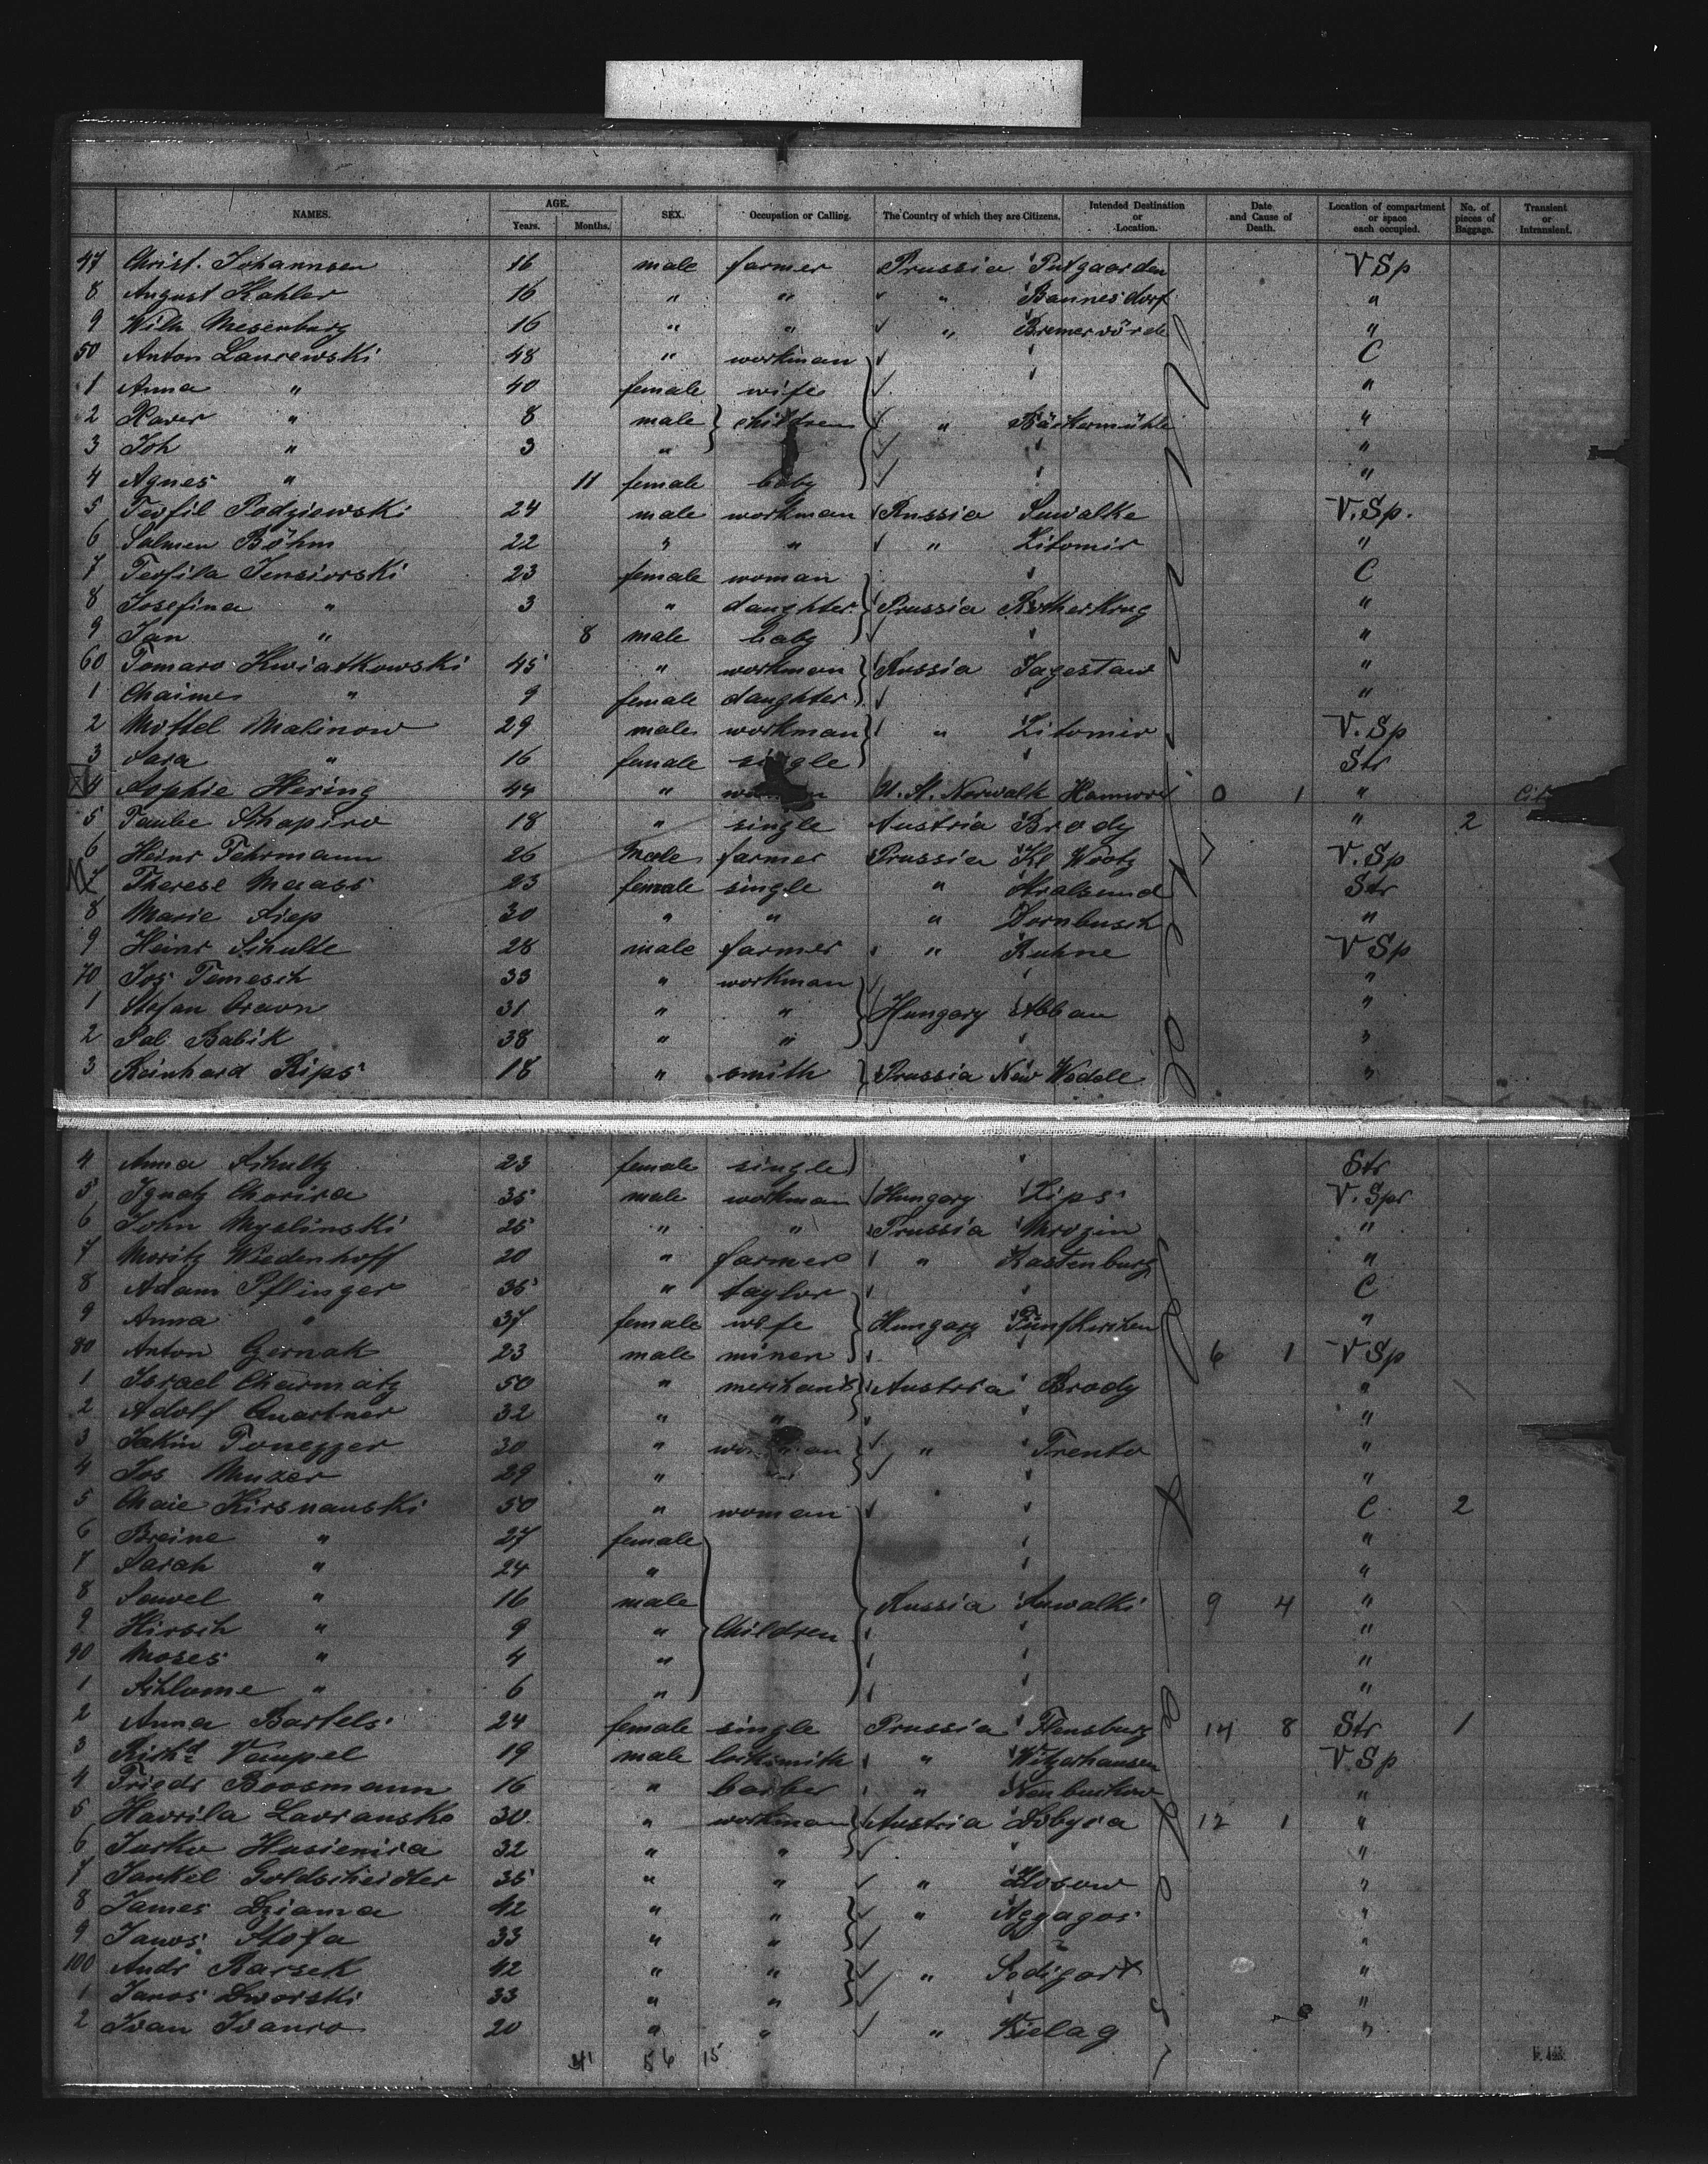 NAMES. AGE. Years. Months. SEX. Occupation or Calling. The Country of which they are Citizens. Intended Destination or Location. Date and Cause of Death. Location of compartment or space each occupied. No. of pieces of Baggage. Transient or Intransient.
47 Christ. Johannsen 16 male farmer Prussia Putgaarden V Sp
8 August Kahler 16 " " " Bannesdorf "
9 Wilh Mesenburg 16 " " " Bremervörde "
50 Anton Laurewski 48 " workman C
1 Anna " 40 female wife "
2 Xaver " 8 male children " "
3 Joh " 3 " "
4 Agnes " 11 female baby "
5 Teofil Podziewski 24 male workman Russia Suwalke V. Sp.
6 Salmen Böhm 22 " " " Zitomir "
7 Teofila Jensiorski 23 female woman C
8 Josefina " 3 " daughter Prussia "
9 Jan " 8 male baby "
60 Tomaro Kwiatkowski 45 " workman Russia Jagestaw "
1 Chaime " 9 female daughter "
2 Mottel Malinow 29 male workman " Zitomir V. Sp
3 Sara " 16 female single Str
4 Sophie Hering 44 " U. S. Norwalk 0 1 "
5 Taube Schapiro 18 " single Austria Brody " 2
6 Heinr Fehrmann 26 Male farmer Prussia Kl Wootz V. Sp
7 Therese Maass 23 female single " Stralsund Str
8 Marie Siep 30 " " " Dornbusch "
9 Heinr Schulte 28 male farmer " Ruhne V Sp
70 Jos Temesch 33 " workman "
1 Stefan 31 " " Hungary Abbau "
2 Sal. Babik 38 " " "
3 Reinhard Rips 18 " smith Prussia New Wedell "
4 Anna Schultz 23 female single Str
5 Ignatz 35 male workman Hungary Zips V. Spr
6 John Myslinski 25 " " Prussia Mrozin "
7 Moritz Wiedenhoff 20 " farmer " Rastenburg "
8 Adam Pflinger 35 " taylor C
9 Anna " 37 female wife Hungary Fünfkirchen "
80 Anton Gernak 23 male miner 6 1 V Sp
1 Israel Charmatz 50 " merchant Austria Brody "
2 Adolf Quartner 32 " " "
3 Tonezzer 30 " workman " Trento "
4 Jos Muxer 29 " "
5 Chaie Kirsnanski 50 " woman C 2
6 Breine " 27 female "
7 Sarah " 24 " "
8 Sawel " 16 male Russia Suwalki 9 4 "
9 Hirsch " 9 " Children "
90 Moses " 4 " "
1 Schlome " 6 " "
2 Anna Bartels 24 female single Prussia Flensburg 14 8 Str 1
3 Richd Vaupel 19 male locksmith " Witzenhausen V. Sp
4 Friedr Boosmann 16 " barber " Neubuckow "
5 Havrila Lavransko 30 " workman Austria 12 1 "
6 Jurko Husienica 32 " " "
7 Jankel Goldscheider 35 " " " "
8 James Dziama 42 " " " "
9 Janos Stofa 33 " " "
100 Andr Barsek 42 " " " "
1 Janos Dworski 33 " " "
2 Ivan Ivanco 20 " " " Kielag "
41 56 15